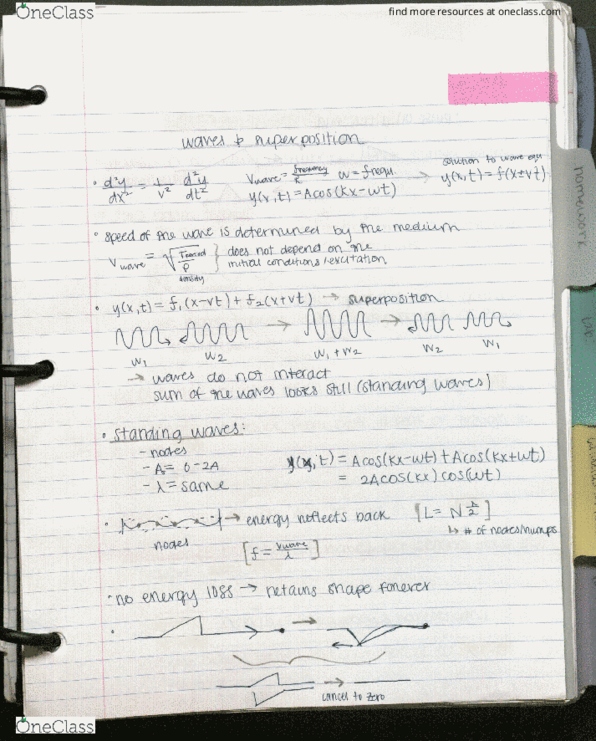 OneClass
find more resources at oneclass.com
waves & superposition
• d²y/dx² = 1/v² d²y/dt² Vwave = frequency/k w = frequ. → solution to wave equ
y(x,t) = Acos(kx-wt) y(x,t) = f(x±vt)
• speed of the wave is determined by the medium
Vwave = √ /ρ } does not depend on the
density initial conditions/excitation
• y(x,t) = f₁(x-vt) + f₂(x+vt) → superposition
→ →
w₁ w₂ w₁+w₂ w₂ w₁
→ waves do not interact
sum of the waves looks still (standing waves)
• standing waves:
- nodes
- A = 0-2A
- λ = same
y(x,t) = Acos(kx-wt) + Acos(kx+wt)
= 2Acos(kx)cos(wt)
• → energy reflects back [L = N λ/2]
nodes [f = Vwave/λ] ↳ # of nodes/humps
• no energy loss → retains shape forever
•
→ cancel to zero
OneClass
homework